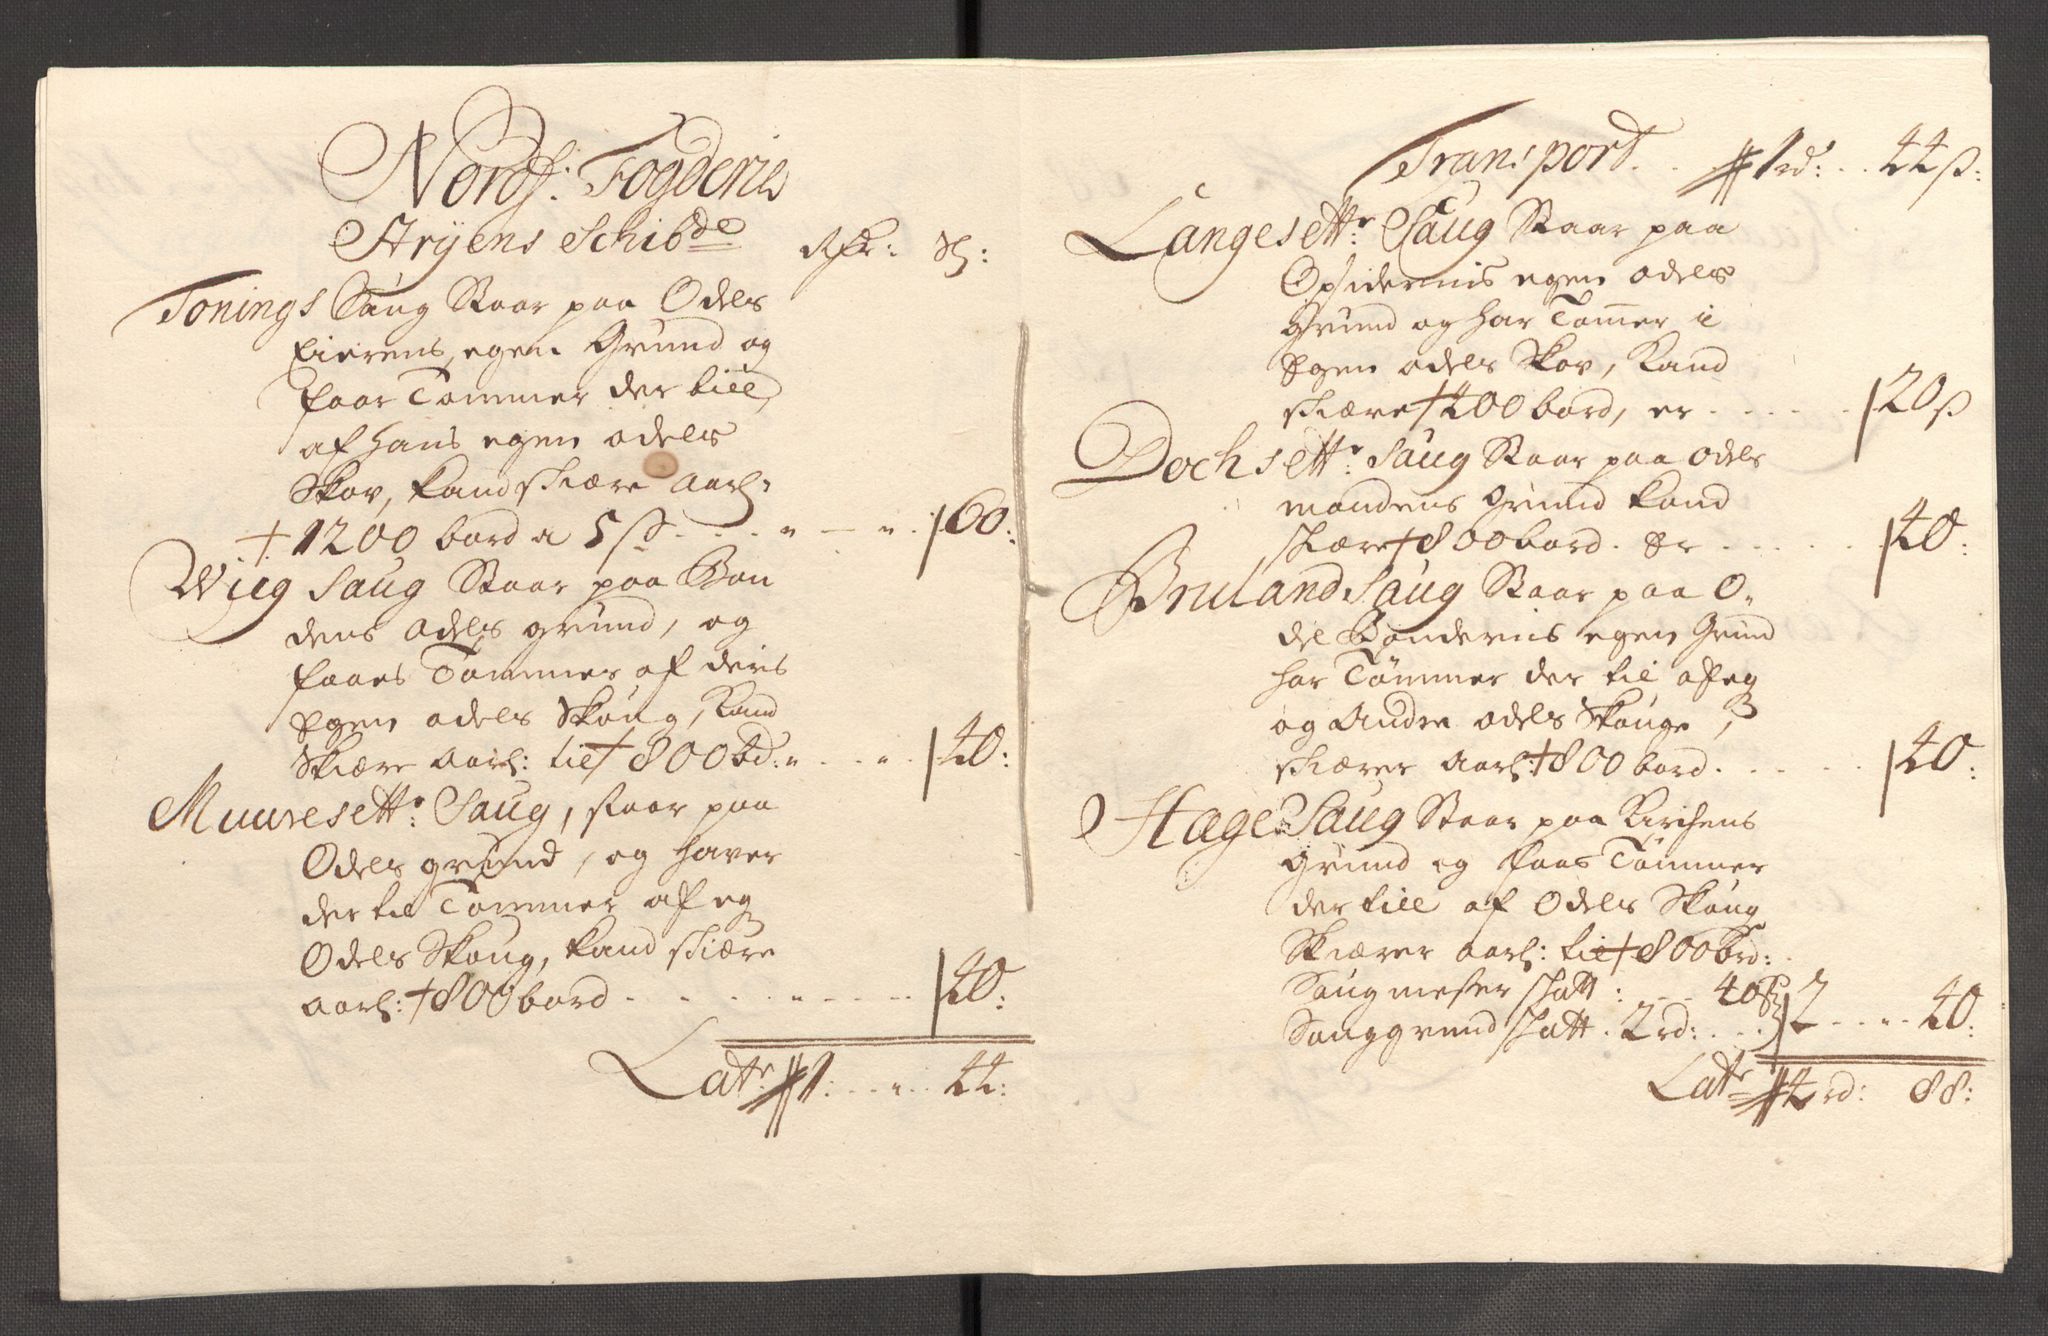 Nordf: Fogderie
Stryens Schibde Rdr: ſs:
Tonings Saug Staar paa Odels
Eierens egen Grund og
faar Tømmer der till,
af hans egen odels
Skov, kand skiære aarl:
+ 1200 bord a 5 ſs . . . " — " . 60:
Wiig Saug Staar paa Bon
dens odels grund, og
faaes Tømmer af deris
Egen odels Skoug, Kand
Skiære aarl: til + 800 bd: " . . . " . 40:
Muuresettr: Saug, staar paa
Odels grund, og haver
der til Tømmer af eg
Odels Skoug, kand skiære
aarl: + 800 bord . . . . " . . . . 40:
Latr 1: . . " . . 44:
Transport . . 1 rd: . . 44 ſs:
Langesettr: Saug Staar paa
Opsidernis egen odels
grund og har Tømer i
Egen odels Skov, Kand
skiære + 400 bord, er . . . . . 20 ſs
Dochsettr: Saug Staar paa odels
mandens grund kand
skiære + 800 bord. er . . . . . 40:
Bruland Saug Staar paa O"
del Bondernis egen Grund
har Tømmer der til af eg
og Andre odels Skouge,
skiærer aarl: + 800 bord . . . . . 40:
Hæge Saug Staar paa Kirchens
grund og faas Tømmer
der till af Odels Skoug
Skiærer aarl: til + 800 brd: .
Saugmester skatt : . . 40 ſs
Sauggrund skatt . 2 rd: . . . 2 . . . . 40:
Latr 4 rd: 88: